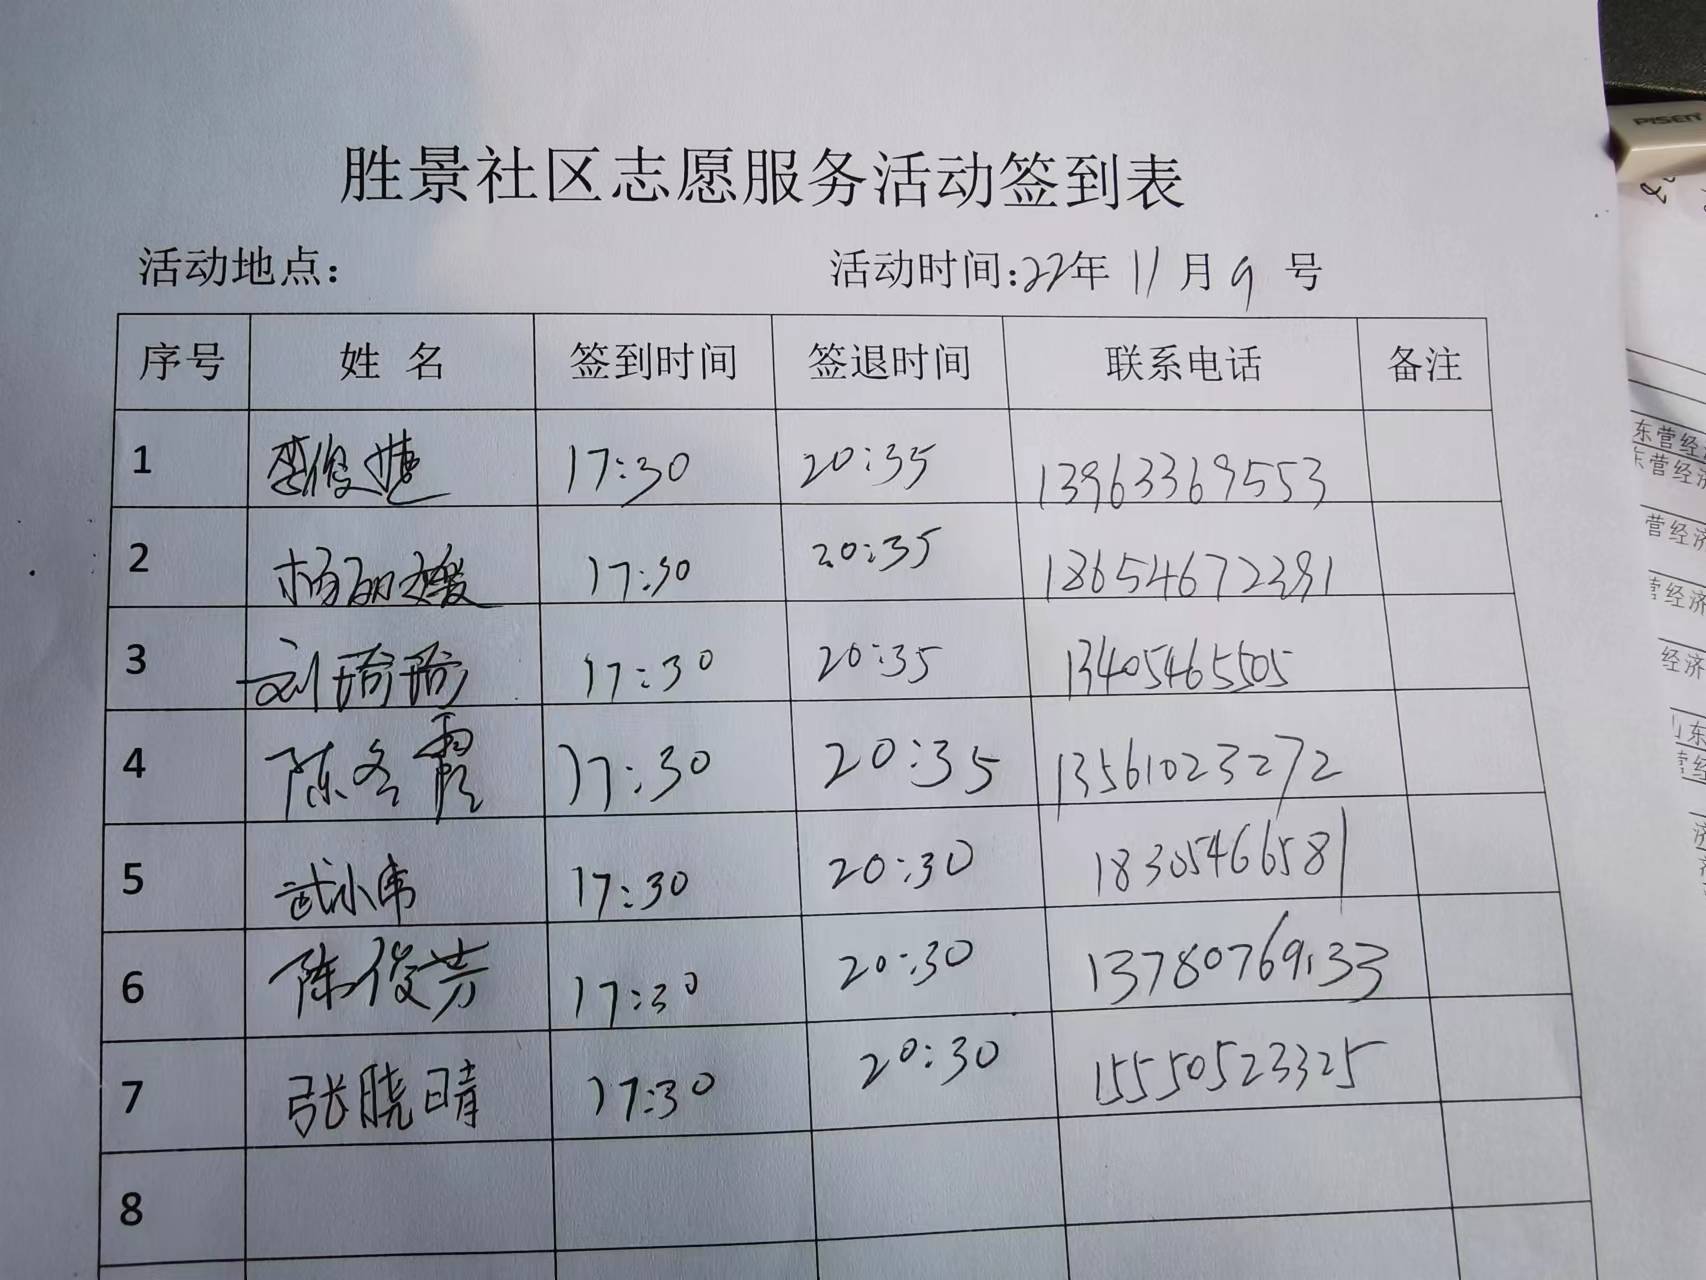 PISEN
胜景社区志愿服务活动签到表
活动地点: 活动时间:22年 11 月 9 号
序号 姓 名 签到时间 签退时间 联系电话 备注
1 李俊婕 17:30 20:35 13963369553
2 杨丽媛 17:30 20:35 18654672391
3 刘 17:30 20:35 13405465505
4 陈冬霞 17:30 20:35 13561023272
5 武小伟 17:30 20:30 18305466581
6 陈俊芳 17:30 20:30 13780769133
7 张晓晴 17:30 20:30 15550523325
8
东营经济
东营经济
营经济
营经济
经济
山东
营经
济